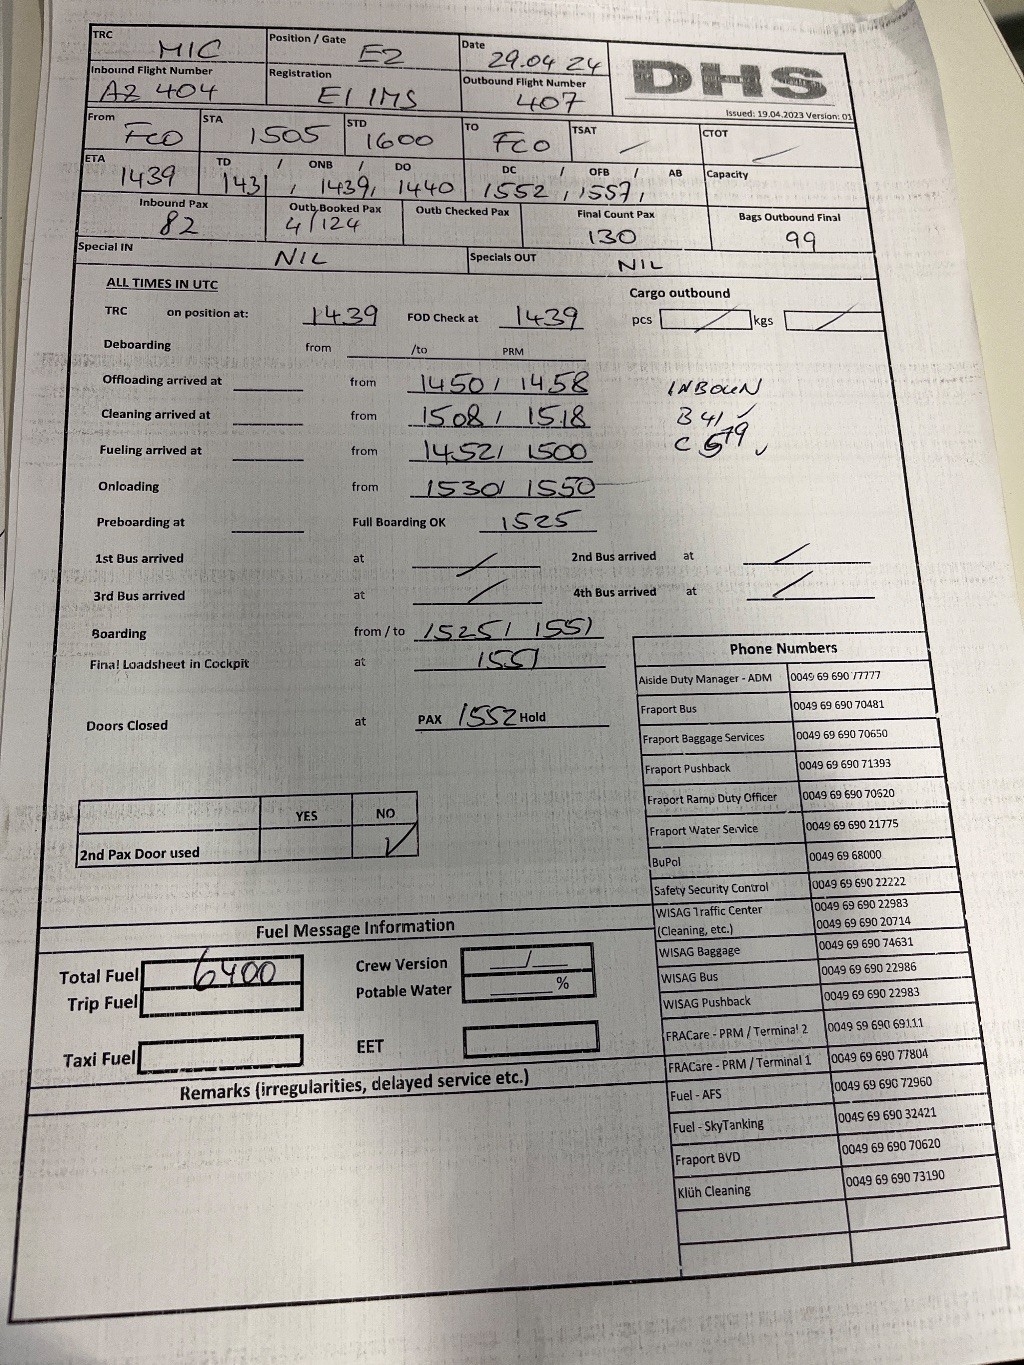 TRC MIC Position / Gate E2 Date 29.04 24 DHS
Inbound Flight Number AZ 404 Registration EI IMS Outbound Flight Number 407
Issued: 19.04.2023 Version: 01
From FCO STA 1505 STD 1600 TO FCO TSAT / CTOT /
ETA 1439 TD / ONB / DO 1431 / 1439 / 1440 DC / OFB / AB 1552 / 1557 / Capacity
Inbound Pax 82 Outb Booked Pax 4/124 Outb Checked Pax Final Count Pax 130 Bags Outbound Final 99
Special IN NIL Specials OUT NIL
ALL TIMES IN UTC Cargo outbound
TRC on position at: 1439 FOD Check at 1439 pcs / kgs /
Deboarding from /to PRM
Offloading arrived at from 1450 / 1458 INBOUN
Cleaning arrived at from 1508 / 1518 B 41 ✓
Fueling arrived at from 1452 / 1500 C
Onloading from 1530 / 1550
Preboarding at Full Boarding OK 1525
1st Bus arrived at / 2nd Bus arrived at /
3rd Bus arrived at / 4th Bus arrived at /
Boarding from / to 1525 / 1551
Final Loadsheet in Cockpit at 1551
Doors Closed at PAX 1552 Hold
YES NO
2nd Pax Door used ✓
Phone Numbers
Aiside Duty Manager - ADM 0049 69 690 77777
Fraport Bus 0049 69 690 70481
Fraport Baggage Services 0049 69 690 70650
Fraport Pushback 0049 69 690 71393
Fraport Ramp Duty Officer 0049 69 690 70520
Fraport Water Service 0049 69 690 21775
BuPol 0049 69 68000
Safety Security Control 0049 69 690 22222
WISAG Traffic Center 0049 69 690 22983
(Cleaning, etc.) 0049 69 690 20714
WISAG Baggage 0049 69 690 74631
WISAG Bus 0049 69 690 22986
WISAG Pushback 0049 69 690 22983
FRACare - PRM / Terminal 2 0049 59 690 69111
FRACare - PRM / Terminal 1 0049 69 690 77804
Fuel - AFS 0049 69 690 72960
Fuel - SkyTanking 0049 69 690 32421
Fraport BVD 0049 69 690 70620
Klüh Cleaning 0049 69 690 73190
Fuel Message Information
Total Fuel 6400 Crew Version /
Trip Fuel Potable Water %
Taxi Fuel EET
Remarks (irregularities, delayed service etc.)